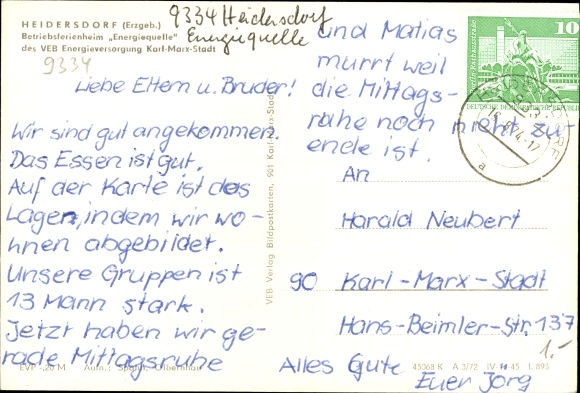 9334 Heidersdorf
Energiequelle
HEIDERSDORF (Erzgeb.)
Betriebsferienheim „Energiequelle"
des VEB Energieversorgung Karl-Marx-Stadt
9334
Liebe Eltern u. Bruder!
Wir sind gut angekommen.
Das Essen ist gut.
Auf der Karte ist das
Lager, indem wir wo-
hnen abgebildet.
Unsere Gruppen ist
13 Mann stark.
Jetzt haben wir ge-
rade Mittagsruhe
und Matias
murrt weil
die Mittags-
ruhe noch nicht zu-
ende ist.
An
Harald Neubert
90 Karl-Marx-Stadt
Hans-Beimler-Str. 137
1.-
Alles Gute
Euer Jörg
VEB Verlag Bildpostkarten, 901 Karl-Marx-Stadt
EVP -,20 M Aufn.: Spahn, Olbernhau
45068 K A 3/72 IV-14-45 L 893
10
DEUTSCHE DEMOKRATISCHE REPUBLIK